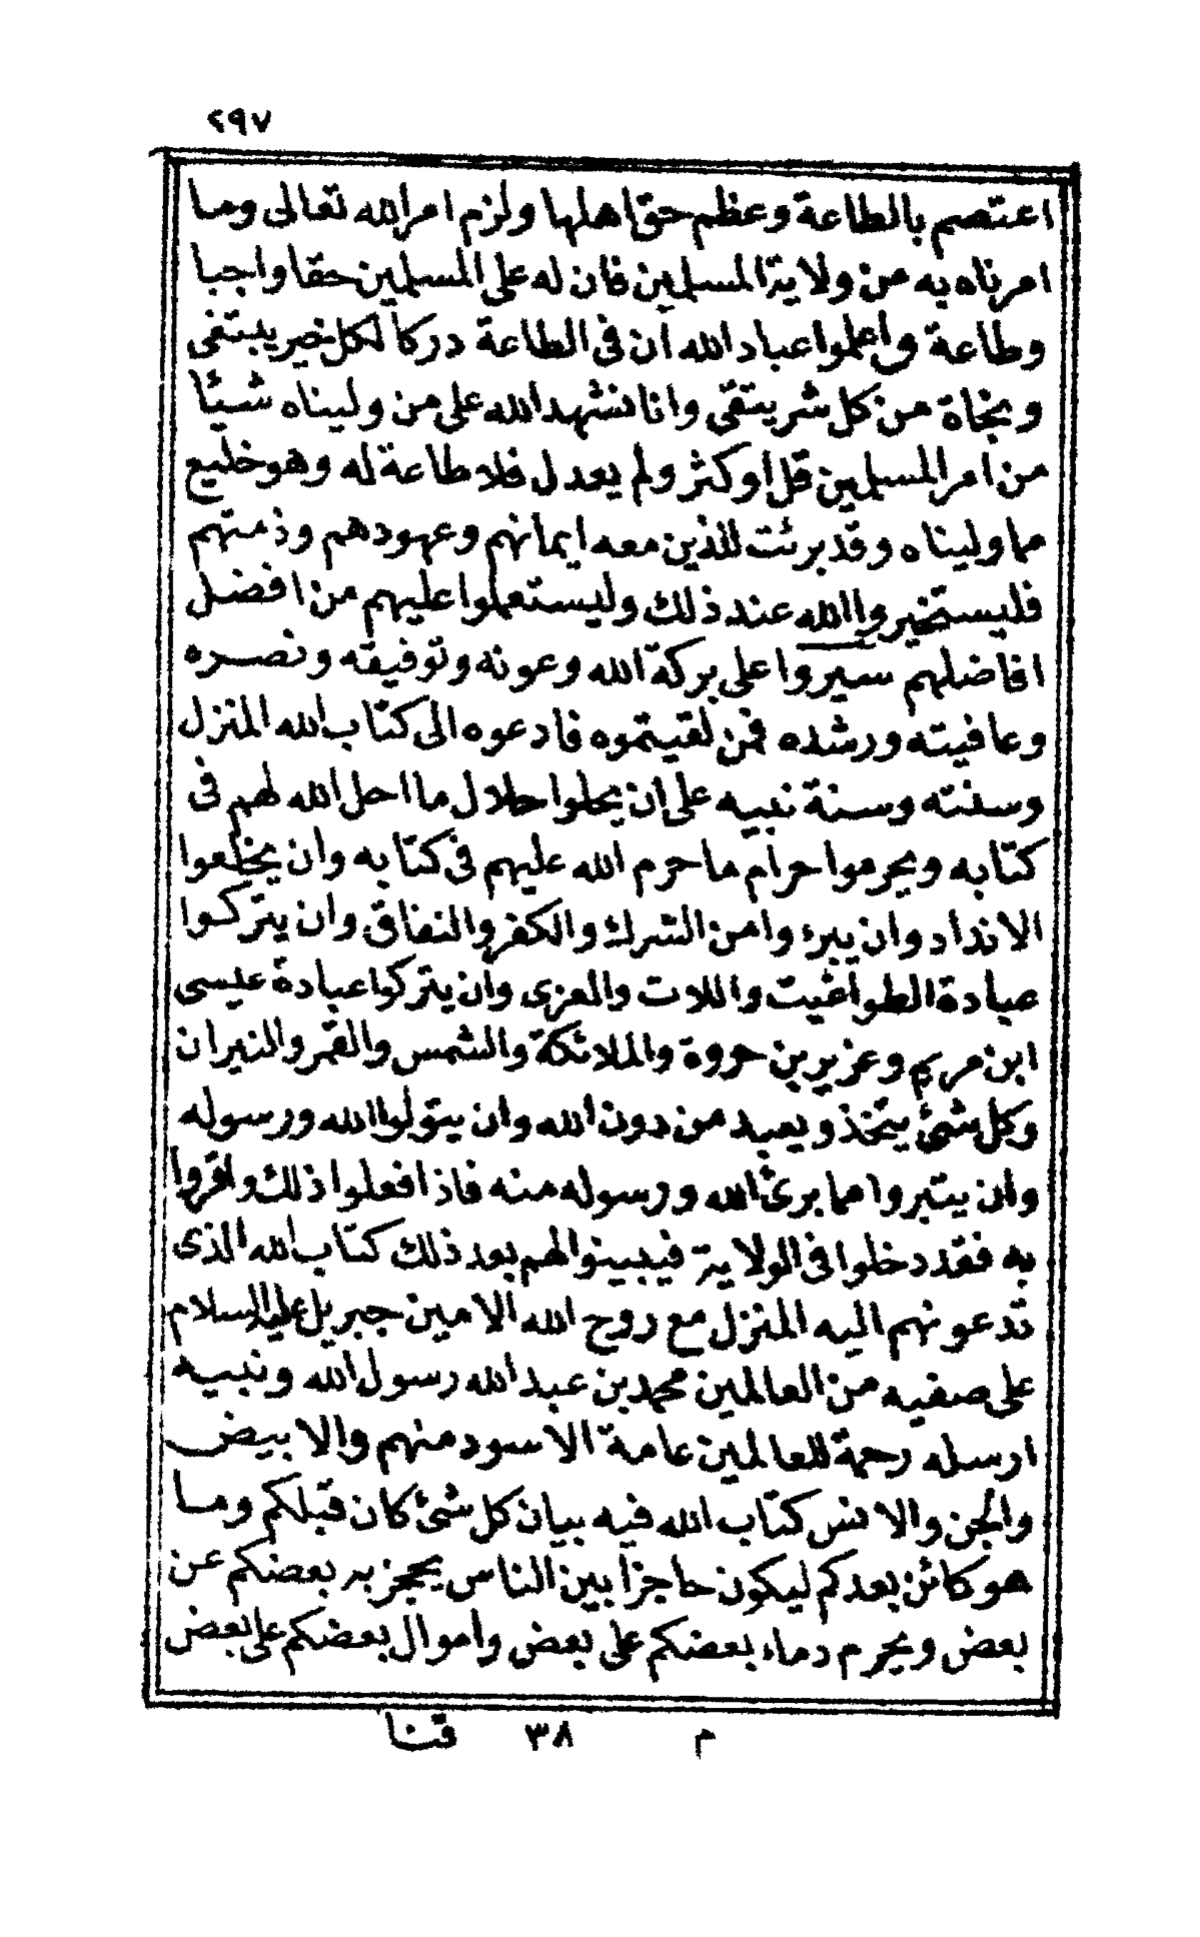 ٢٩٧
اعتصم بالطاعة وعظم حق اهلها ولزم امر الله تعالى وما
امرناه به من ولاية المسلمين فان له على المسلمين حقا واجبا
وطاعة واعلموا عباد الله أن فى الطاعة دركا لكل خير يبتغى
ونجاة من كل شر يتقى وانا نشهد الله على من وليناه شيئا
من امر المسلمين قل او كثر ولم يعدل فلا طاعة له وهو خليع
مما وليناه وقد برئت للذين معه ايمانهم وعهودهم وذمتهم
فليستخيروا الله عند ذلك وليستعملوا عليهم من افضل
افاضلهم سيروا على بركة الله وعونه وتوفيقه ونصره
وعافيته ورشده فمن لقيتموه فادعوه الى كتاب الله المنزل
وسنته وسنة نبيه على ان يحلوا حلال ما احل الله لهم فى
كتابه ويحرموا حرام ما حرم الله عليهم فى كتابه وان يخلعوا
الانداد وان يبرءوا من الشرك والكفر والنفاق وان يتركوا
عبادة الطواغيت واللات والعزى وان يتركوا عبادة عيسى
ابن مريم وعزير بن حروة والملائكة والشمس والقمر والنيران
وكل شئ يتخذ ويعبد من دون الله وان يتولوا الله ورسوله
وان يتبروا مما برئ الله ورسوله منه فاذا فعلوا ذلك واقروا
به فقد دخلوا فى الولاية فيبينوا لهم بعد ذلك كتاب الله الذى
تدعونهم اليه المنزل مع روح الله الامين جبريل عليه السلام
على صفيه من العالمين محمد بن عبد الله رسول الله ونبيه
ارسله رحمة للعالمين عامة الاسود منهم والابيض
والجن والانس كتاب الله فيه بيان كل شئ كان قبلكم وما
هو كائن بعدكم ليكون حاجزا بين الناس يحجز به بعضكم عن
بعض ويحرم دماء بعضكم على بعض واموال بعضكم على بعض
م ٣٨ قنا